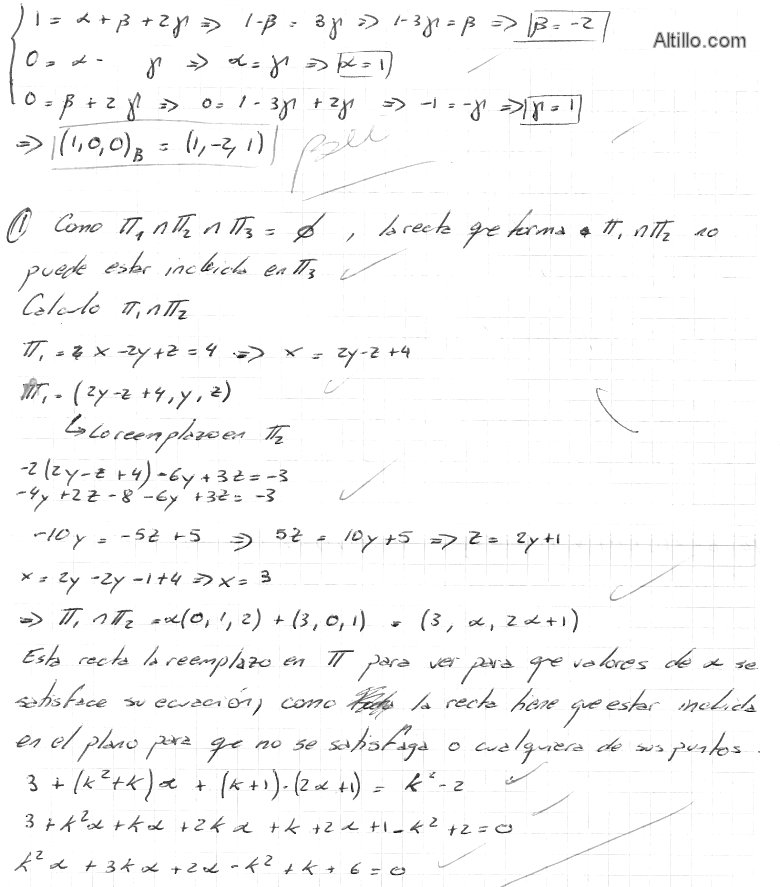 1 = α + β + 2γ ⇒ 1-β = 3γ ⇒ 1-3γ = β ⇒ β = -2
Altillo.com
0 = α - γ ⇒ α = γ ⇒ α = 1
0 = β + 2γ ⇒ 0 = 1 - 3γ + 2γ ⇒ -1 = -γ ⇒ γ = 1
⇒ (1,0,0)B = (1,-2,1)
1) Como π1 ∩ π2 ∩ π3 = ∅, la recta que forma π1 ∩ π2 no
puede estar incluida en π3
Calculo π1 ∩ π2
π1 = x - 2y + z = 4 ⇒ x = 2y - z + 4
π1 = (2y - z + 4, y, z)
↳ Lo reemplazo en π2
-2(2y - z + 4) - 6y + 3z = -3
-4y + 2z - 8 - 6y + 3z = -3
-10y = -5z + 5 ⇒ 5z = 10y + 5 ⇒ z = 2y + 1
x = 2y - 2y - 1 + 4 ⇒ x = 3
⇒ π1 ∩ π2 = α(0,1,2) + (3,0,1) = (3, α, 2α+1)
Esta recta la reemplazo en π para ver para que valores de α se
satisface su ecuación, como la recta tiene que estar incluida
en el plano para que no se satisfagan o cualquiera de sus puntos.
3 + (k²+k)α + (k+1)·(2α+1) = k² - 2
3 + k²α + kα + 2kα + k + 2α + 1 - k² + 2 = 0
k²α + 3kα + 2α - k² + k + 6 = 0